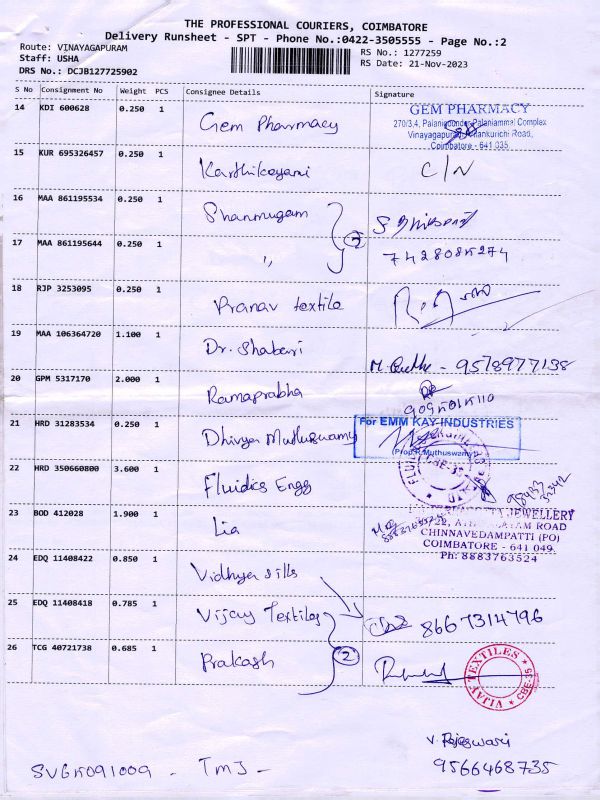 THE PROFESSIONAL COURIERS, COIMBATORE
Delivery Runsheet - SPT - Phone No.:0422-3505555 - Page No.:2
Route: VINAYAGAPURAM
Staff: USHA
DRS No.: DCJB127725902
RS No.: 1277259
RS Date: 21-Nov-2023
S No Consignment No Weight PCS Consignee Details Signature
14 KDI 600628 0.250 1 Gem Pharmacy
GEM PHARMACY
270/3,4, Palanigounder Palaniammal Complex
Vinayagapuram, Athankurichi Road,
Coimbatore - 641 035
15 KUR 695326457 0.250 1 Karthikeyani C/N
16 MAA 861195534 0.250 1 Shanmugam
17 MAA 861195644 0.250 1 〃 2 7428085274
18 RJP 3253095 0.250 1 Pranav textile
19 MAA 106364720 1.100 1 Dr. Shabari 9578977138
20 GPM 5317170 2.000 1 Ramaprabha
21 HRD 31283534 0.250 1 Dhivya Muthuswamy
For EMM KAY INDUSTRIES
Prop.K.Muthuswamy
22 HRD 350660800 3.600 1 Fluidics Engg
23 BOD 412028 1.900 1 Lia
JEWELLERY
ROAD
CHINNAVEDAMPATTI (PO)
COIMBATORE - 641 049.
Ph: 8883763524
24 EDQ 11408422 0.850 1 Vidhya silks
25 EDQ 11408418 0.785 1 Vijay Textiles 8667314796
26 TCG 40721738 0.685 1 Prakash 2
TEXTILES CBE-35
V. Rajeswari
9566468735
TMJ -